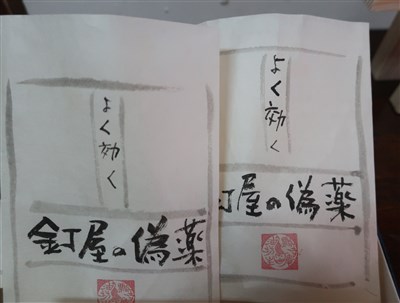 よく効く
釘屋の偽薬
よく効く
釘屋の偽薬